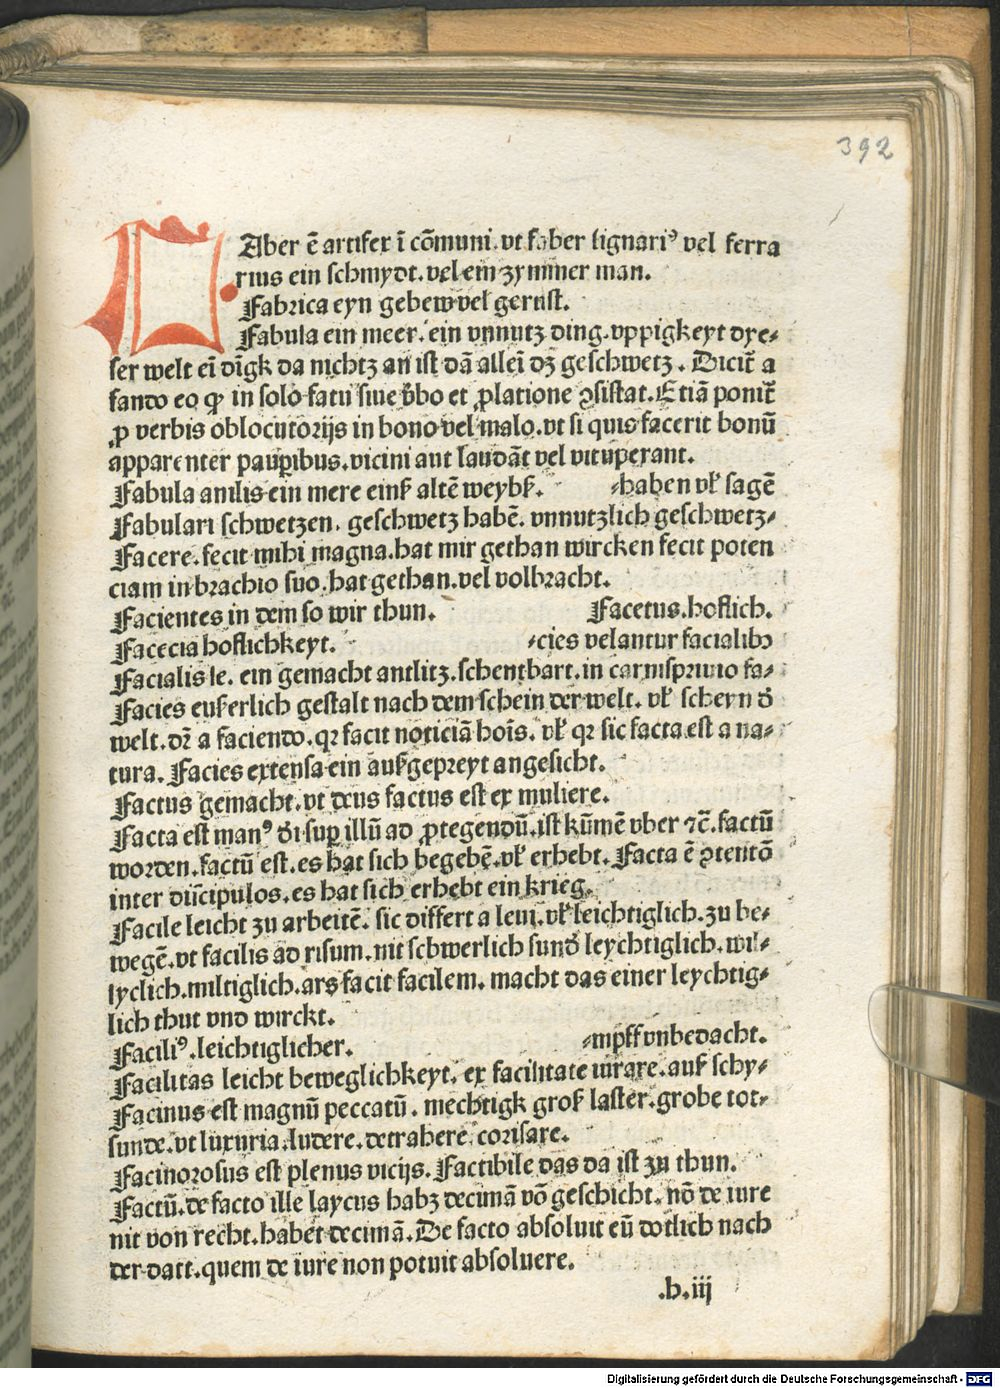 392
Aber ē artifex ī cōmuni. vt faber lignariꝰ vel ferra
rius ein schmydt. vel ein zymmer man.
Fabrica eyn gebew vel gerust.
Fabula ein meer. ein vnnutz ding. vppigkeyt dye⸗
ser welt eī dīgk da nichtz an ist dā alleī dz geschwetz. Dicit᷑ a
fando eo ꝙ in solo fatu siue v̄bo et ꝓlatione ꝯsistat. Etiā ponit᷑
ꝓ verbis oblocutorijs in bono vel malo. vt si quis facerit bonū
apparenter pauꝑibus. vicini aut laudāt vel vituperant.
Fabula anilis ein mere einß altē weybß. ⸗haben vl᷑ sagē
Fabulari schwetzen. geschwetz habē. vnnutzlich geschwetz⸗
Facere. fecit mihi magna. hat mir gethan wircken fecit poten
ciam in brachio suo. hat gethan. vel volbracht.
Facientes in dem so wir thun. Facetus. hoflich.
Facecia hoflichkeyt. ⸗cies velantur facialibꝫ
Facialis le. ein gemacht antlitz. schentbart. in carnispriuio fa⸗
Facies eußerlich gestalt nach dem schein der welt. vl᷑ scheyn d̄
welt. dr̄ a faciendo. qꝛ facit noticiā hoīs. vl᷑ qꝛ sic facta est a na⸗
tura. Facies extensa ein außgepreyt angesicht.
Factus gemacht. vt deus factus est ex muliere.
Facta est manꝰ dn̄i suꝑ illū ad ꝓtegendū. ist kūmē vber ⁊c̄. factū
worden. factū est. es hat sich begebē. vl᷑ erhebt. Facta ē ꝯtentō
inter discipulos. es hat sich erhebt ein krieg.
Facile leicht zu arbeitē. sic differt a leui. vl᷑ leichtiglich. zu be⸗
wegē. vt facilis ad risum. nit schwerlich sund̄ leychtiglich. wil⸗
lyclich. miltiglich. ars facit facilem. macht das einer leychtig⸗
lich thut vnd wirckt.
Faciliꝰ. leichtiglicher. ⸗mpff vnbedacht.
Facilitas leicht beweglichkeyt. ex facilitate iurare. auß schy⸗
Facinus est magnū peccatū. mechtigk groß laster. grobe tot⸗
sunde. vt luxuria. ludere. detrahere. corisare.
Facinorosus est plenus vicijs. Factibile das da ist zu thun.
Factū. de facto ille laycus habꝫ decimā vō geschicht. nō de iure
nit von recht. habet decimā. De facto absoluit eū dotlich nach
der datt. quem de iure non potuit absoluere.
.b.iij
Digitalisierung gefördert durch die Deutsche Forschungsgemeinschaft - DFG